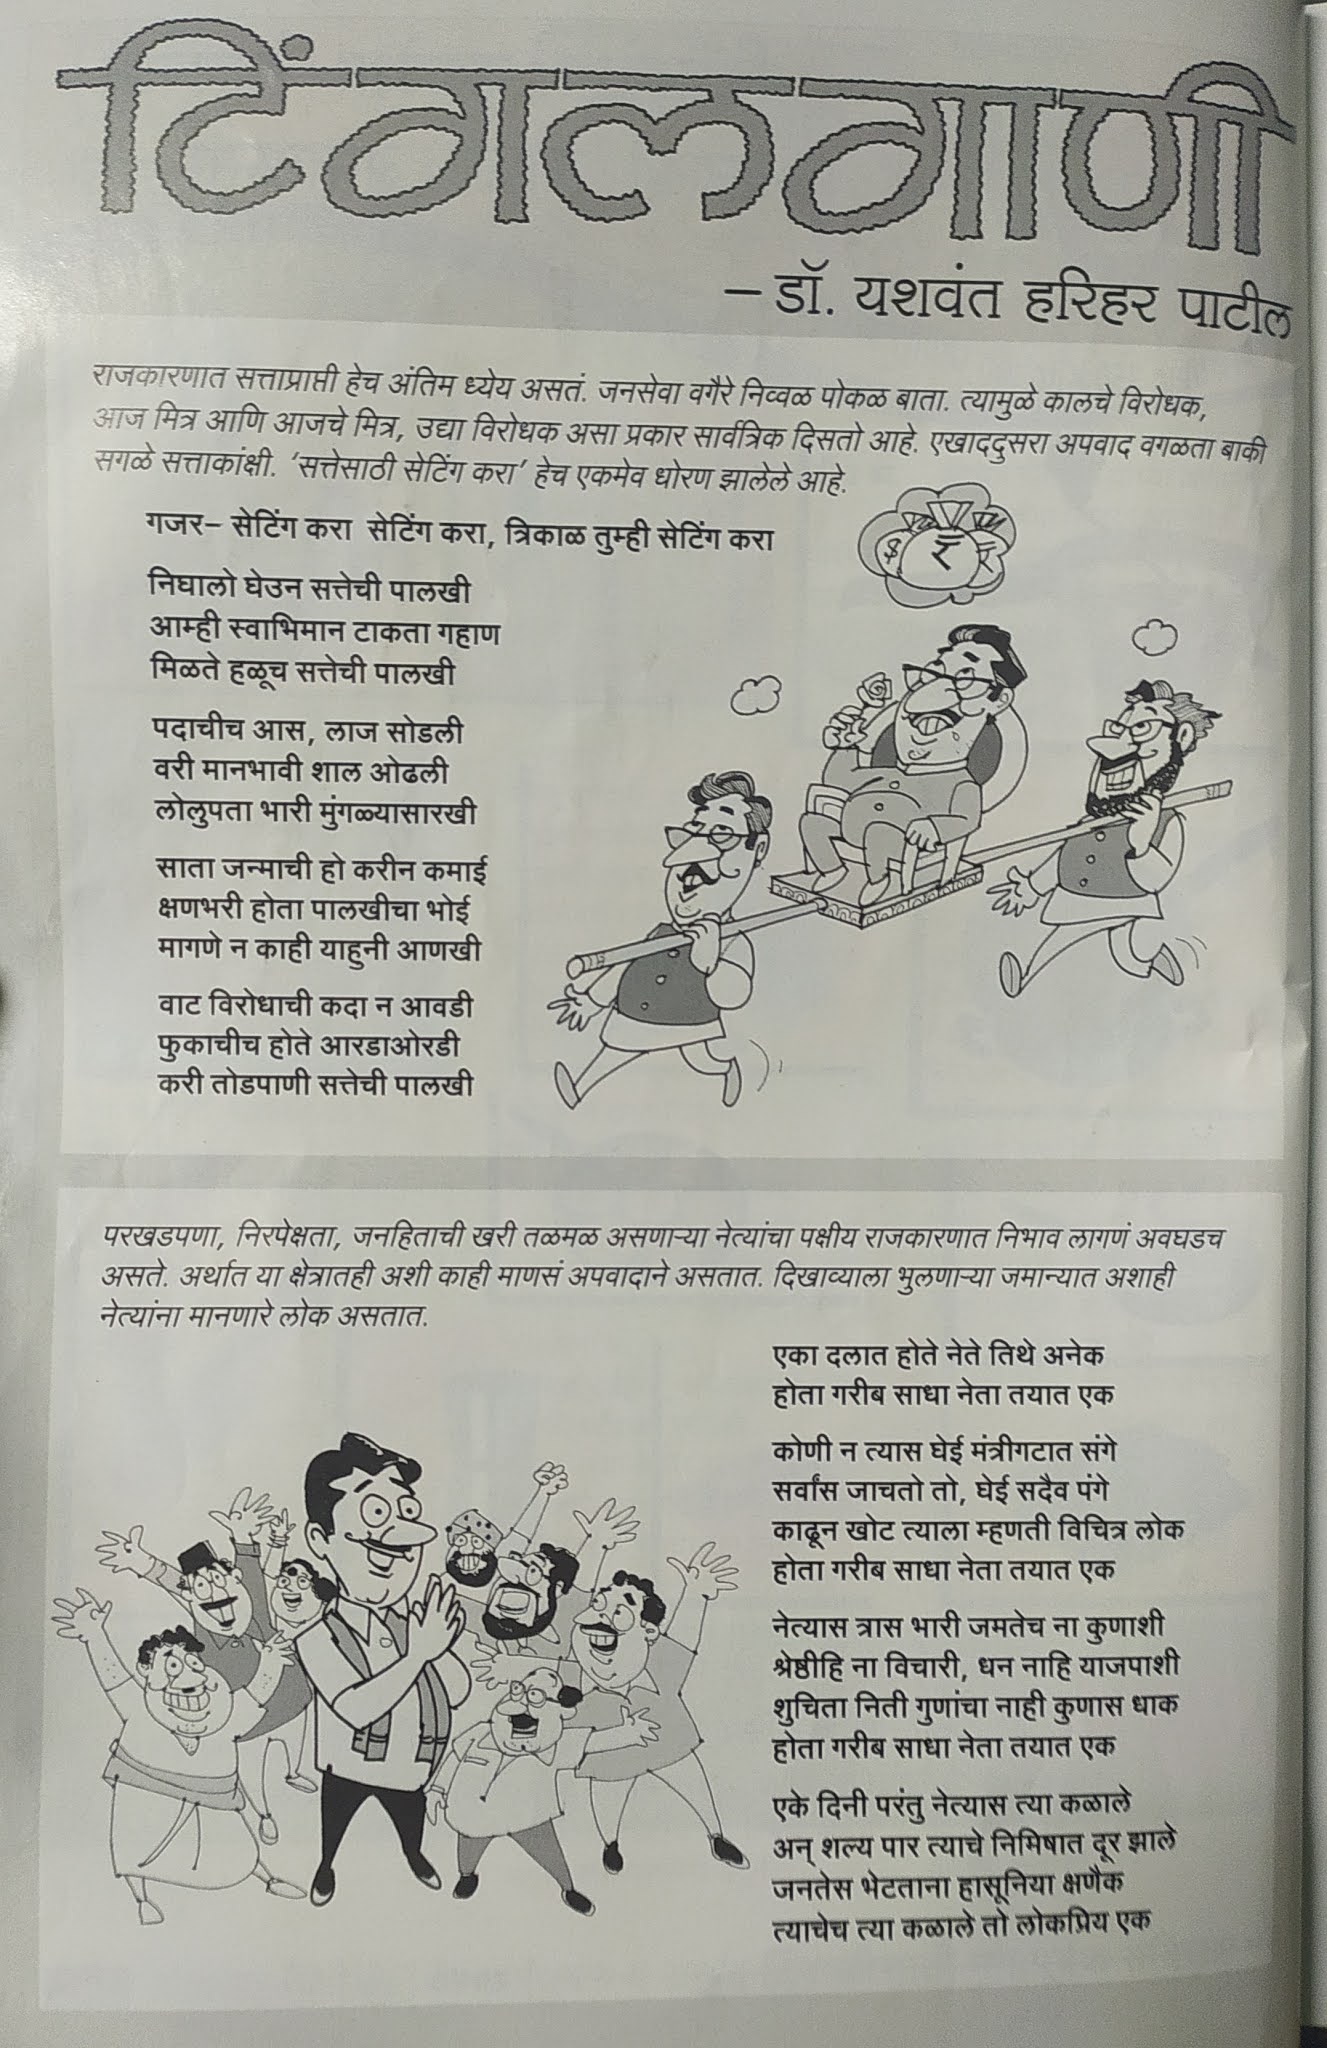 टिंगलगाणी
– डॉ. यशवंत हरिहर पाटील
राजकारणात सत्ताप्राप्ती हेच अंतिम ध्येय असतं. जनसेवा वगैरे निव्वळ पोकळ बाता. त्यामुळे कालचे विरोधक,
आज मित्र आणि आजचे मित्र, उद्या विरोधक असा प्रकार सार्वत्रिक दिसतो आहे. एखाददुसरा अपवाद वगळता बाकी
सगळे सत्ताकांक्षी. ‘सत्तेसाठी सेटिंग करा’ हेच एकमेव धोरण झालेले आहे.
गजर– सेटिंग करा सेटिंग करा, त्रिकाळ तुम्ही सेटिंग करा
निघालो घेउन सत्तेची पालखी
आम्ही स्वाभिमान टाकता गहाण
मिळते हळूच सत्तेची पालखी
पदाचीच आस, लाज सोडली
वरी मानभावी शाल ओढली
लोलुपता भारी मुंगळ्यासारखी
साता जन्माची हो करीन कमाई
क्षणभरी होता पालखीचा भोई
मागणे न काही याहुनी आणखी
वाट विरोधाची कदा न आवडी
फुकाचीच होते आरडाओरडी
करी तोडपाणी सत्तेची पालखी
$ ₹ ₹
परखडपणा, निरपेक्षता, जनहिताची खरी तळमळ असणाऱ्या नेत्यांचा पक्षीय राजकारणात निभाव लागणं अवघडच
असते. अर्थात या क्षेत्रातही अशी काही माणसं अपवादाने असतात. दिखाव्याला भुलणाऱ्या जमान्यात अशाही
नेत्यांना मानणारे लोक असतात.
एका दलात होते नेते तिथे अनेक
होता गरीब साधा नेता तयात एक
कोणी न त्यास घेई मंत्रीगटात संगे
सर्वांस जाचतो तो, घेई सदैव पंगे
काढून खोट त्याला म्हणती विचित्र लोक
होता गरीब साधा नेता तयात एक
नेत्यास त्रास भारी जमतेच ना कुणाशी
श्रेष्ठीहि ना विचारी, धन नाहि याजपाशी
शुचिता निती गुणांचा नाही कुणास धाक
होता गरीब साधा नेता तयात एक
एके दिनी परंतु नेत्यास त्या कळाले
अन् शल्य पार त्याचे निमिषात दूर झाले
जनतेस भेटताना हासूनिया क्षणैक
त्याचेच त्या कळाले तो लोकप्रिय एक